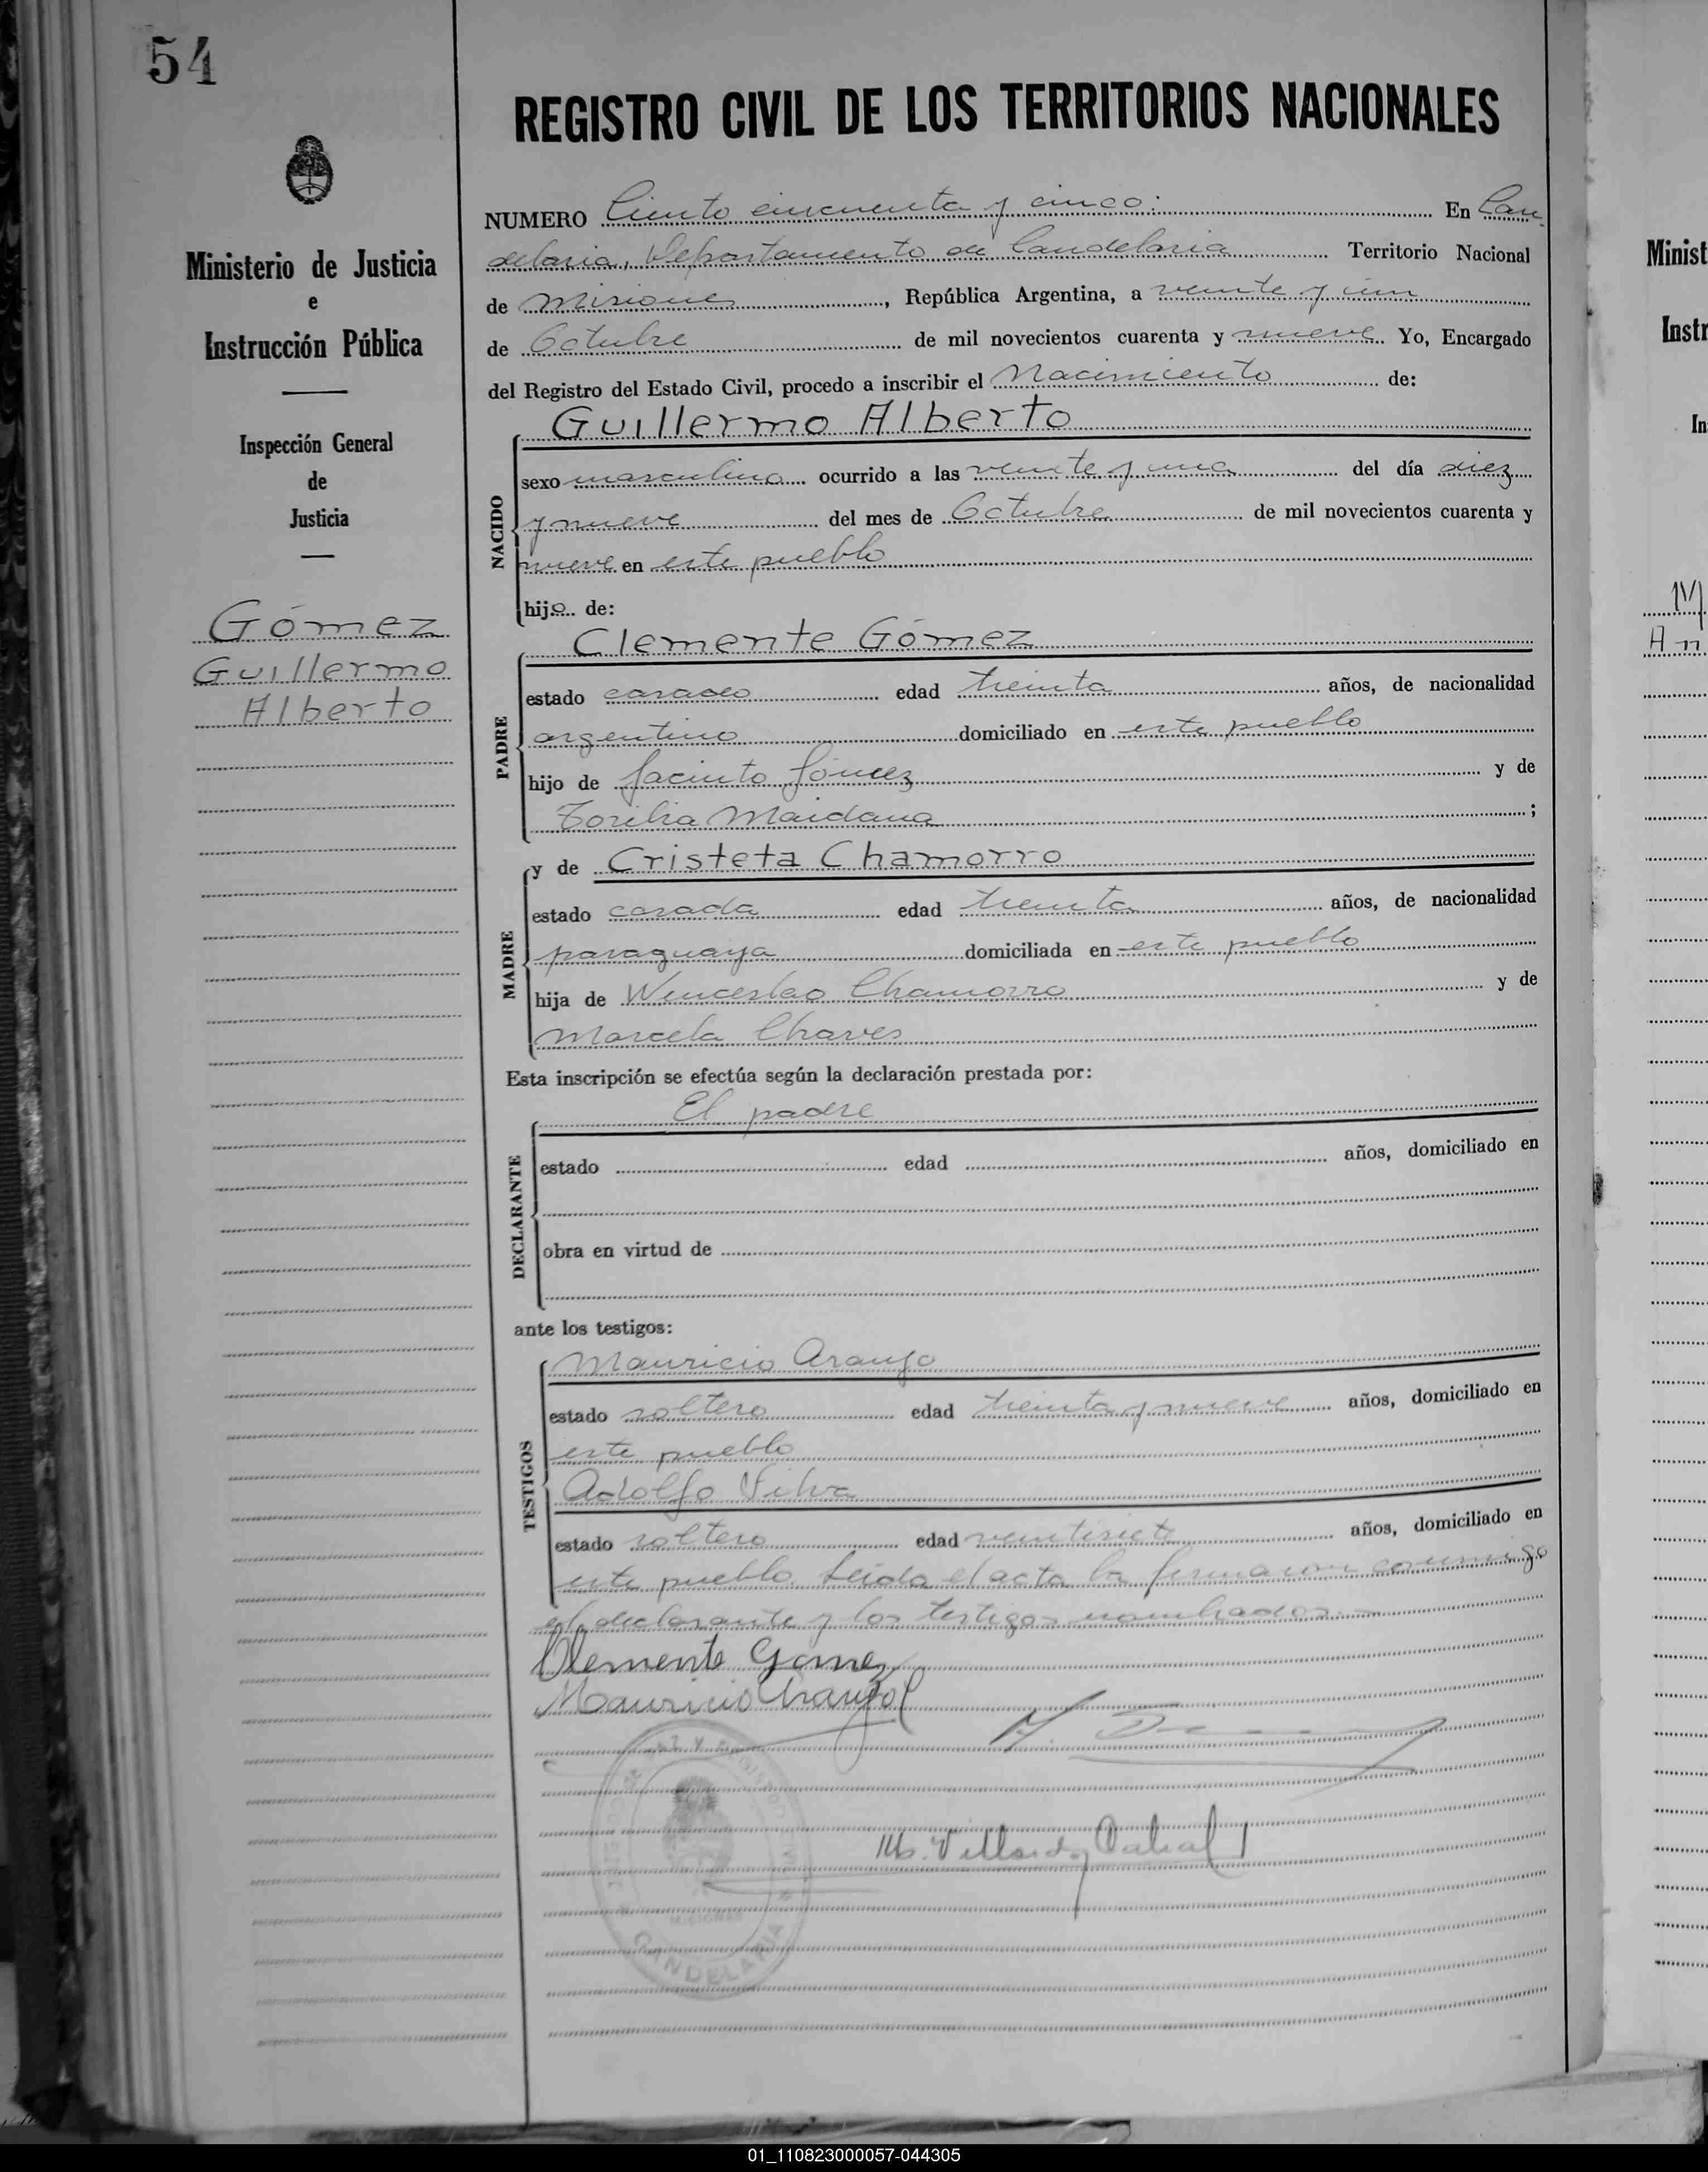 54
REGISTRO CIVIL DE LOS TERRITORIOS NACIONALES
Ministerio de Justicia
e
Instrucción Pública
Inspección General
de
Justicia
Gómez
Guillermo
Alberto
NUMERO Ciento cincuenta y cinco: En Can
delaria, Departamento de Candelaria Territorio Nacional
de Misiones, República Argentina, a veinte y un
de Octubre de mil novecientos cuarenta y nueve. Yo, Encargado
del Registro del Estado Civil, procedo a inscribir el Nacimiento de:
NACIDO
Guillermo Alberto
sexo masculino ocurrido a las veinte y una del día diez
y nueve del mes de Octubre de mil novecientos cuarenta y
nueve en este pueblo
hijo de:
PADRE
Clemente Gómez
estado casado edad treinta años, de nacionalidad
argentino domiciliado en este pueblo
hijo de Jacinto Gómez y de
Torilia Maidana ;
MADRE
y de Cristeta Chamorro
estado casada edad treinta años, de nacionalidad
paraguaya domiciliada en este pueblo
hija de Wenceslao Chamorro y de
Marcela Chaves
Esta inscripción se efectúa según la declaración prestada por:
DECLARANTE
El padre
estado edad años, domiciliado en
obra en virtud de
ante los testigos:
TESTIGOS
Mauricio Araujo
estado soltero edad treinta y nueve años, domiciliado en
este pueblo
Adolfo Silva
estado soltero edad veintisiete años, domiciliado en
este pueblo. Leida el acta la firmaron conmigo
el declarante y los testigos nombrados.
Clemente Gomez
Mauricio Araujo
CANDELARIA
MISIONES
Minist
Instr
In
An
01_110823000057-044305